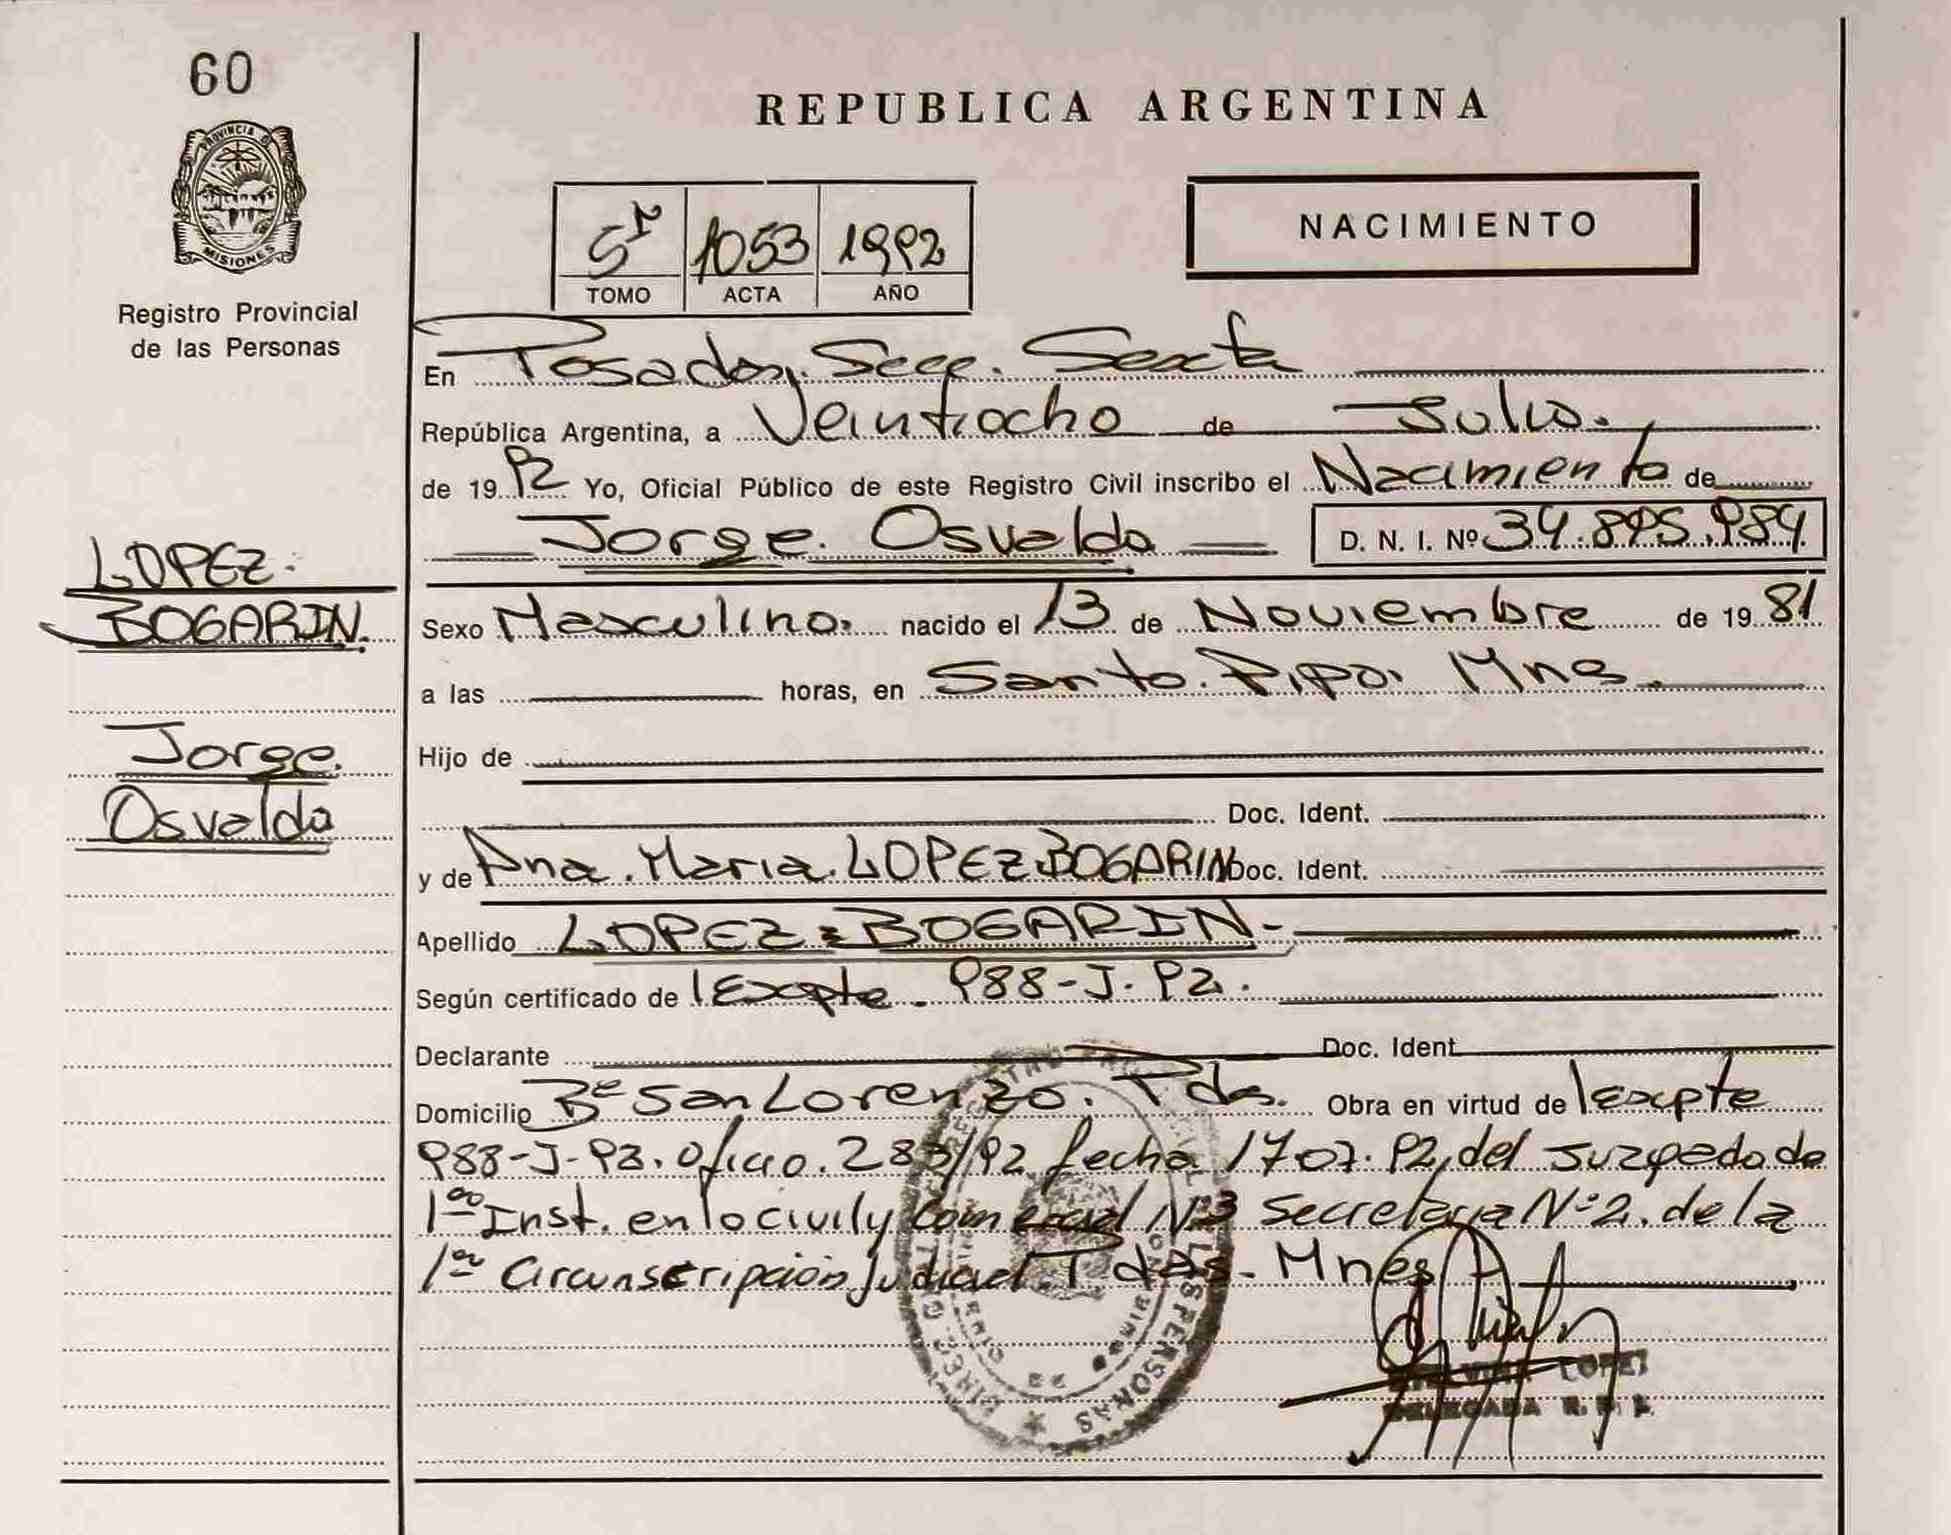 60
PROVINCIA D
MISIONES
Registro Provincial
de las Personas
LOPEZ
BOGARIN.
Jorge.
Osvaldo
REPUBLICA ARGENTINA
1053 1992
TOMO ACTA AÑO
NACIMIENTO
En Posadas, Secc. Sexta
República Argentina, a Veintiocho de Julio.
de 1992 Yo, Oficial Público de este Registro Civil inscribo el Nacimiento de
Jorge. Osvaldo D. N. I. Nº 34.895.984
Sexo Masculino. nacido el 13 de Noviembre de 1981
a las horas, en Santo. Pipo. Mnes.
Hijo de
Doc. Ident.
y de Ana. Maria. LOPEZ BOGARIN Doc. Ident.
Apellido LOPEZ BOGARIN-
Según certificado de Expte. 988-J-92.
Declarante Doc. Ident
Domicilio Bº San Lorenzo. Pdas. Obra en virtud de Expte
988-J-92. Oficio. 283/92 fecha 17.07.92, del Juzgado de
1ª Inst. en lo civil y Comercial Nº3 Secretaria Nº2. de la
1ª Circunscripción Judicial. Pdas. Mnes
LOPEZ
DELEGADA R. P. P.
LAS PERSONAS